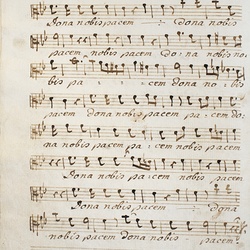 Dona nobis pacem Dona nobis
pacem nobis pacem Do na nobis no
bis pa cem dona no bis
pacem dona nobis pacem pa cem do
na nobis pacem pa cem nobis pacem
Dona nobis pacem nobis pacem
Dona nobis pacem dona
nobis pacem dona nobis pacem